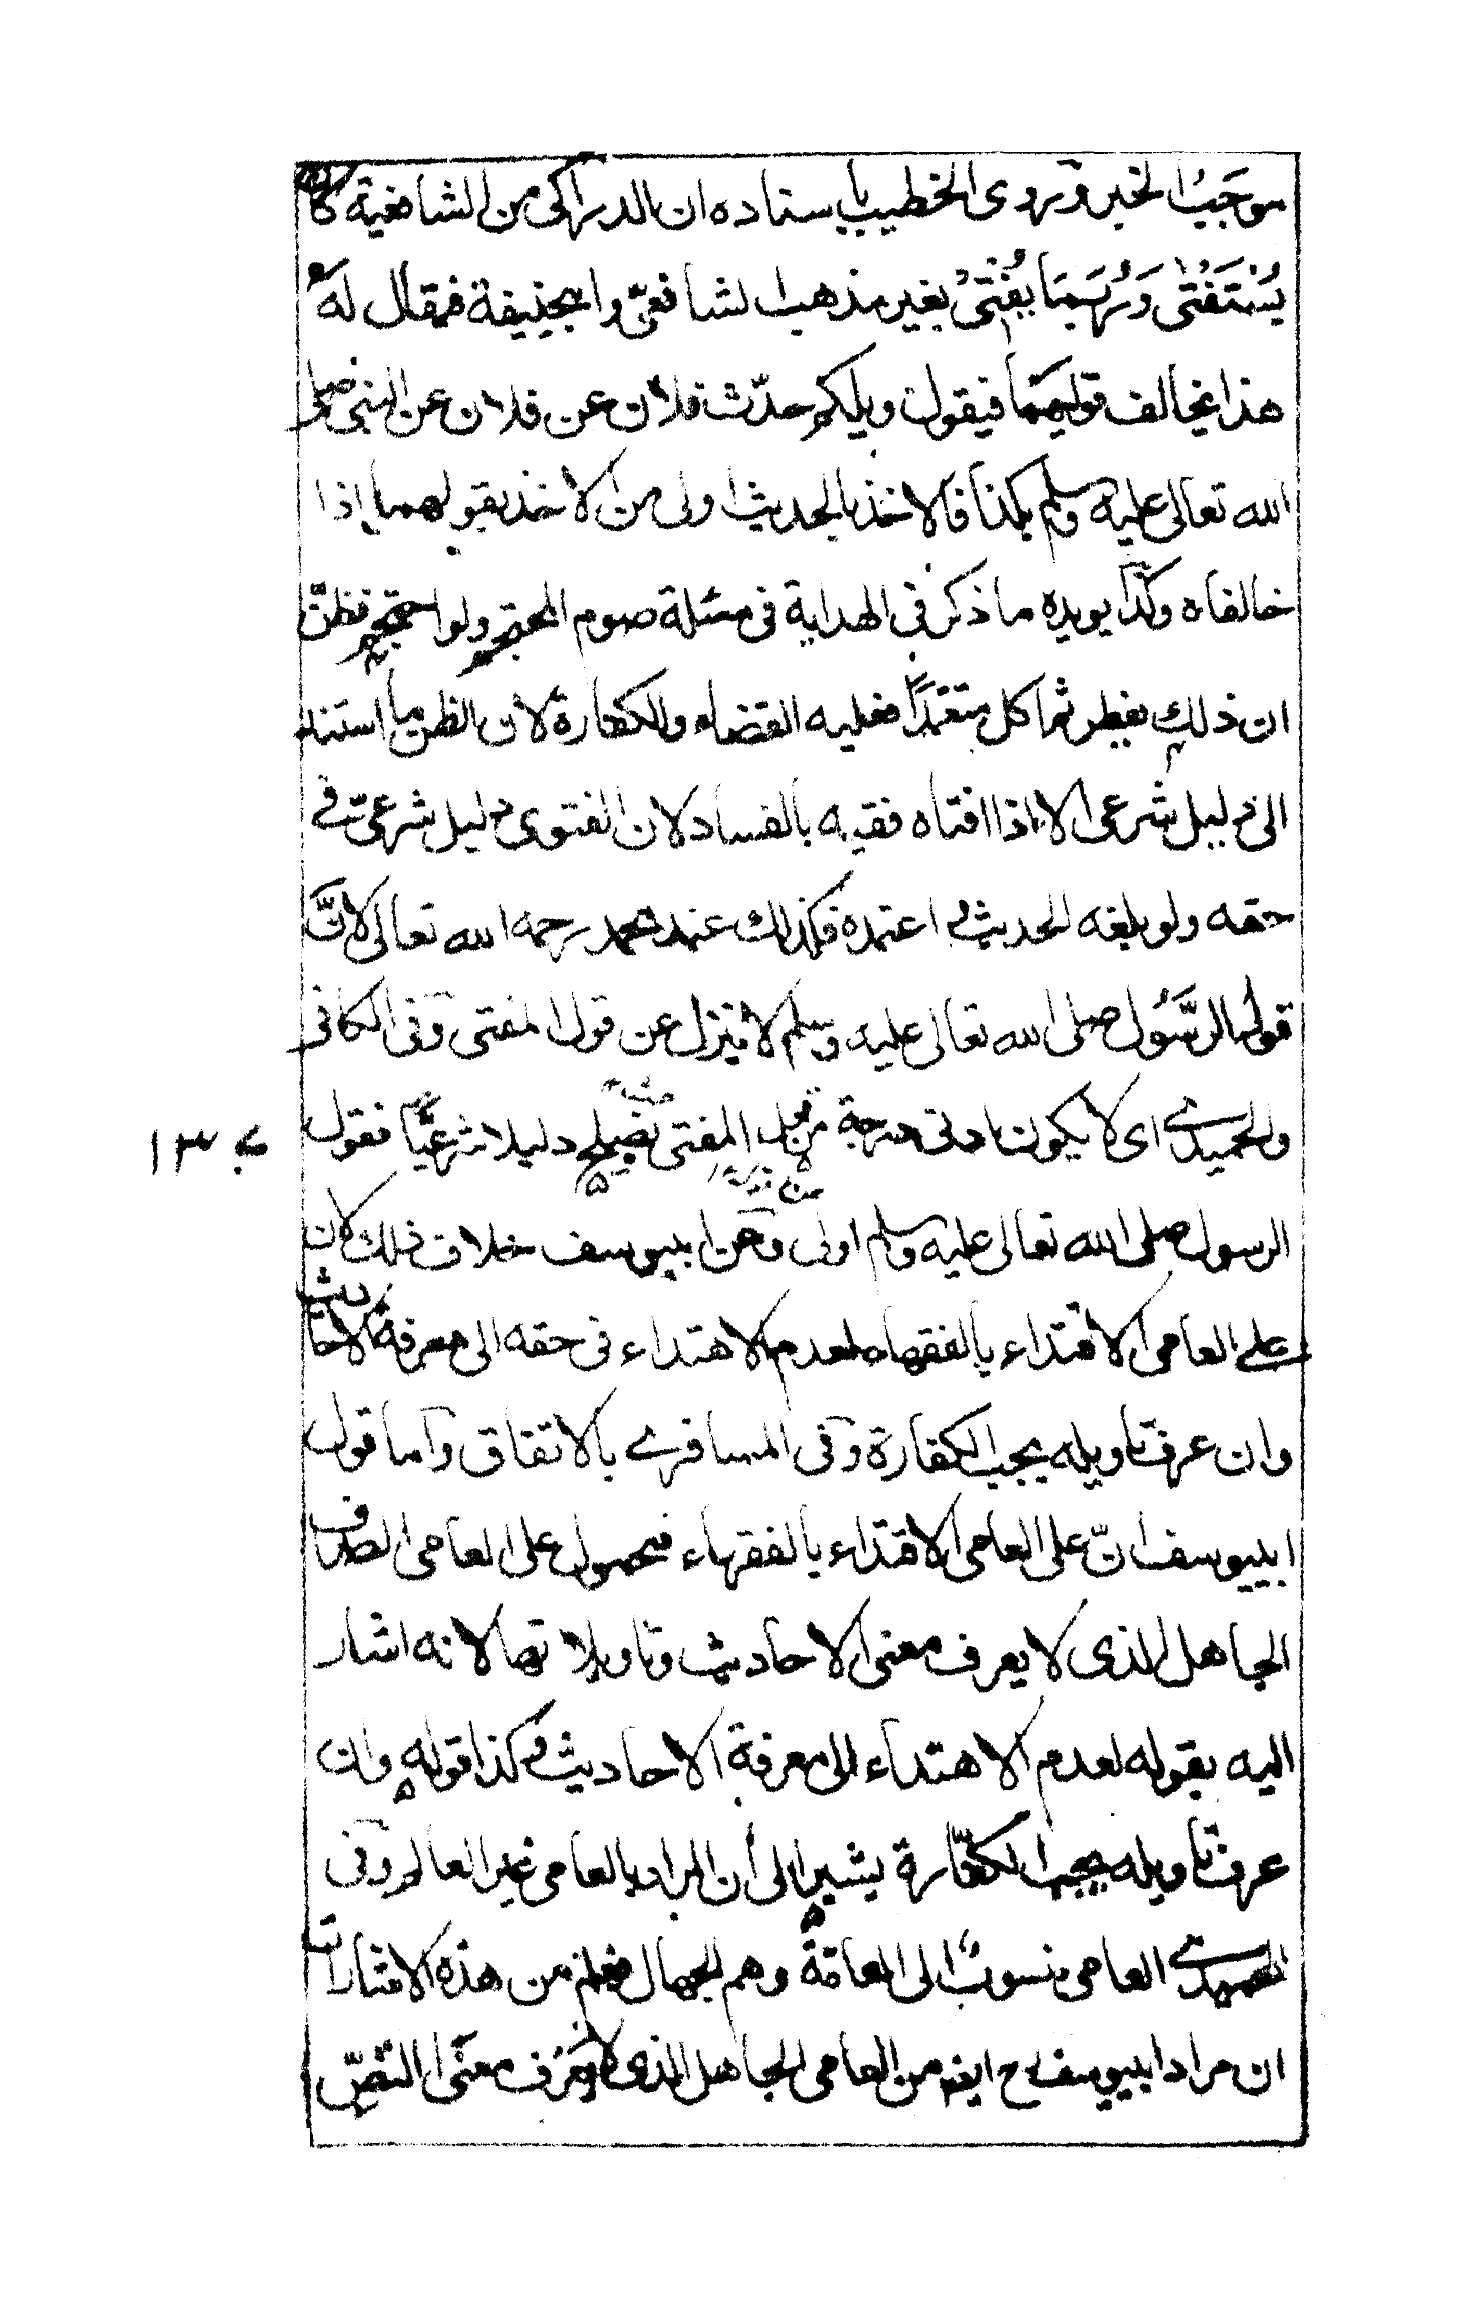 موجَبُ الخبر وروى الخطيب باستاده ان الدراكى من الشافعية كان
يُسْتَفْتٰى وَرُبَمَا يُفْتِىْ بغير مذهب الشافعىّ وابيحنيفة فقال لهُ
هذا يخالف قوليهما فيقول ويلكم حدّث فلان عن فلان عن النبى صلى
الله تعالى عليه وسلم بكذا فالاخذ بالحديث اولى من الاخذ بقولهما إذا
خالفاه وكذا يويده ما ذكر فى الهداية فى مسئلة صوم المحتجم ولو احتجم فظنّ
ان ذلك يفطر ثم اكل متعمّداً فعليه القضاء والكفارة لان الظن ما استند
الى دليل شرعى الا اذا افتاه فقيه بالفساد لان الفتوى دليل شرعىّ فى
حقه ولو بلغه الحديث و اعتمده فكذلك عند محمد رحمه الله تعالى لانَّ
قول الرَّسُول صلى الله تعالى عليه وسلم لا ينزل عن قول المفتى وفى الكافى
والحميدى اى لا يكون ادنى درجة من قول المفتى يصلح دليلا شرعيًّا فقول
الرسول صلى الله تعالى عليه وسلم اولى وعن ابييوسف خلاف ذلك لان
على العامى الاقتداء بالفقهاء لعدم الاهتداء فى حقه الى معرفة الاحاديث
وان عرف تاويله يجب الكفارة وفى المسافرى بالاتفاق واما قول
ابييوسف انّ على العامى الاقتداء بالفقهاء فمحمول على العامى الصرف
الجاهل الذى لا يعرف معنى الاحاديث وتاويلاتها لانه اشار
اليه بقوله لعدم الاهتداء الى معرفة الاحاديث وكذا قوله وان
عرف تاويله يجب الكفّارة يشير الى أن المراد بالعامى غير العالم وفى
الحميدى العامى منسوبٌ الى العامّة وهم الجهال فعلم من هذه الاشارات
ان مراد ابييوسف رح ايضا من العامى الجاهل الذى لا يعرف معنى النصّ
١٣٠ ے